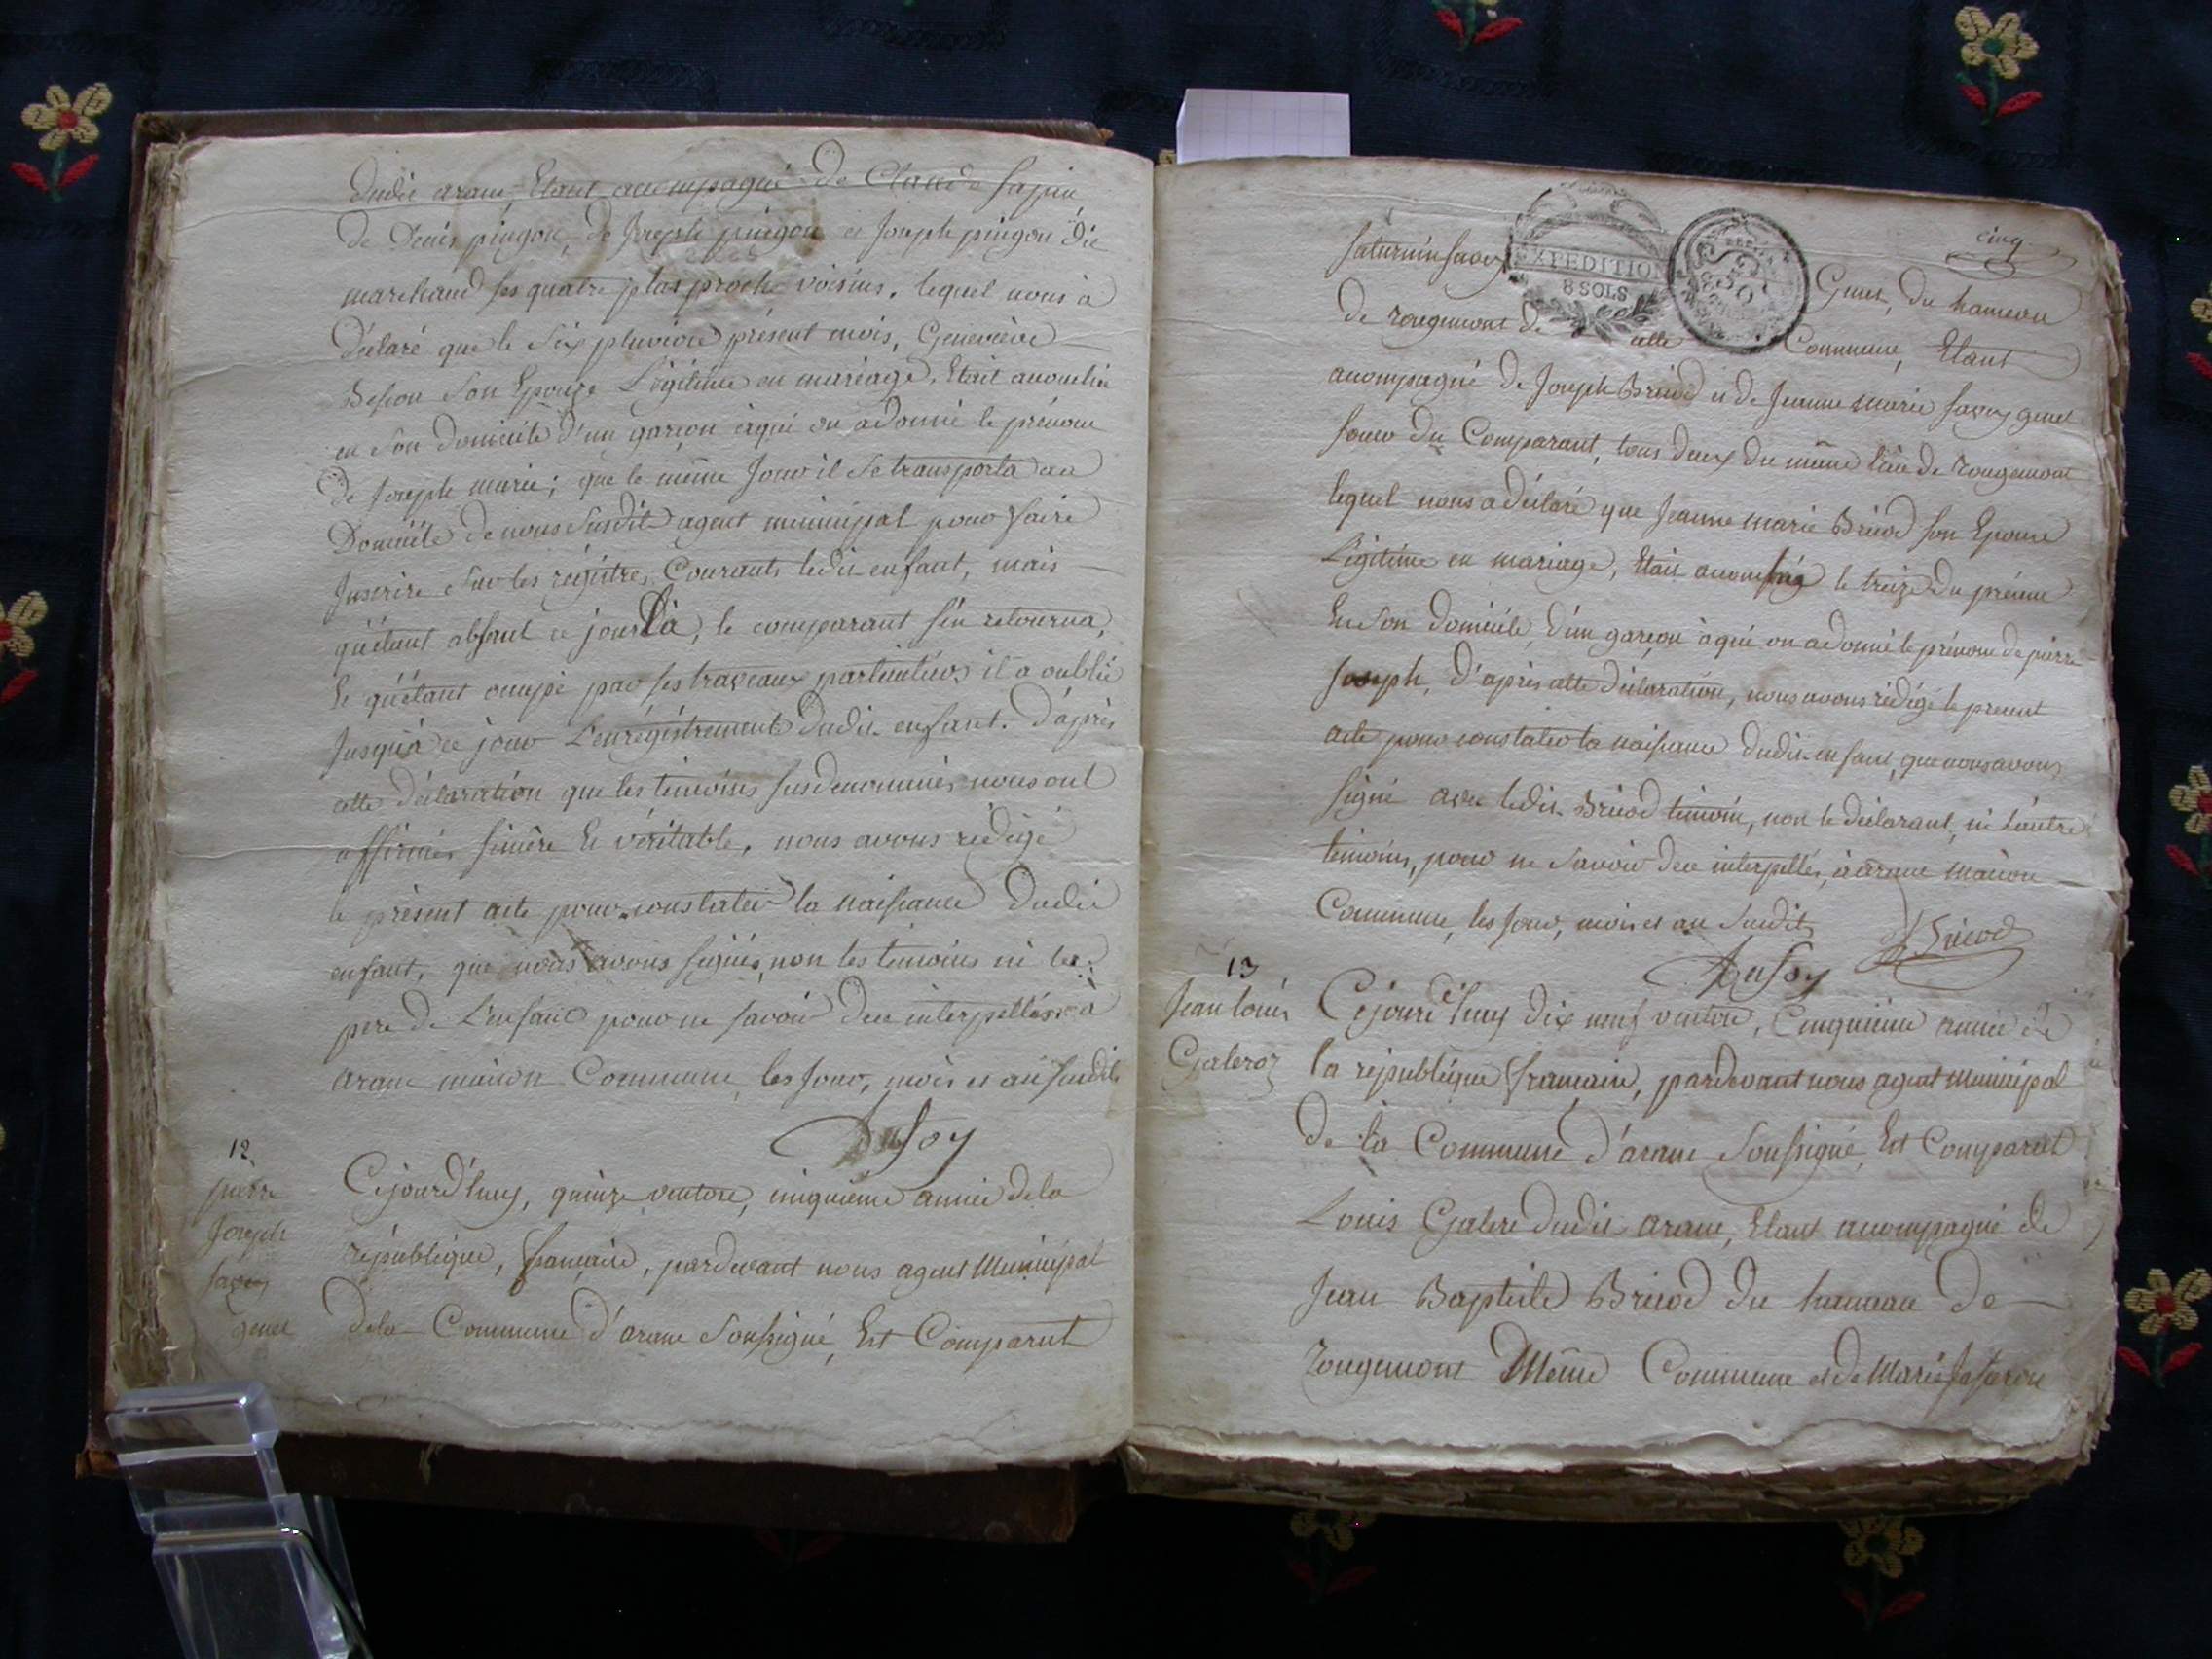 dudit aranc, Etant accompagné de Claude sapin,
de Denis pingon, de Joseph pingon et Joseph pingon dit
marchand ses quatre plus proche voisins. lequel nous à
Déclaré que le Six pluviose présent mois, Geneviève
Besson Son Epouze Légitime en mariage, Etait accouchée
en Son domicile d'un garçon àqui on adonné le prénom
de Joseph marie; que le même Jour il Se transporta au
Domicile de nous Susdit agent municipal pour faire
Inscrire Sur les régistres Courants ledit enfant, mais
qu'étant absent ce jour là, le comparant s'en retourna,
Et qu'étant occupé par ses travaux particuliers il a oublié
Jusqu'à ce jour L'enrégistrement dudit enfant. D'après
cette déclaration que les temoins susdenommés nous ont
affirmés sincère Et véritable, nous avons rédigé
le présent acte pour constater la naissance dudit
enfant, que nous avons signés, non les temoins ni le
pere de L'enfant pour ne savoir dece interpellés à
aranc maison Commune, les Jour, mois et an susdits
Dufoy
12
pierre
Joseph
savey
genet
Cejourd'huy, quinze ventose, cinquième année dela
république, française, pardevant nous agent Municipal
dela Commune d'aranc Soussigné, Est Comparut
cinq
EXPEDITION
8 SOLS
saturnin savey Genet, du hameau
de rougemont de cette Commune, Etant
accompagné de Joseph Bricod et de Jeanne marie savey genet
soeur du Comparant, tous deux du même lieu de rougemont
lequel nous a déclaré que Jeanne marie Bricod son Epouse
Légitime en mariage, Etait accouchée le treize du présent
En Son domicile, d'un garçon àqui on adonné le prénom de pierre
Joseph, D'après cette déclaration, nous avons rédigé le present
acte pour constater la naissance dudit enfant, que nous avons
signé avec ledit Bricod temoin, non le déclarant, ni l'autre
temoins, pour ne Savoir dece interpellés, à aranc maison
Commune, les Jour, mois et an Susdits
Bricod
Dufoy
13
Jean Louis
Galeroz
Cejourd'huy dix neuf ventose, Cinquième année de
la république française, pardevant nous agent Municipal
de la Commune d'aranc Soussigné, Est Comparut
Louis Galere dudit aranc, Etant accompagné de
Jean Baptiste Bricod du hameau de
rougemont Même Commune et de Marie